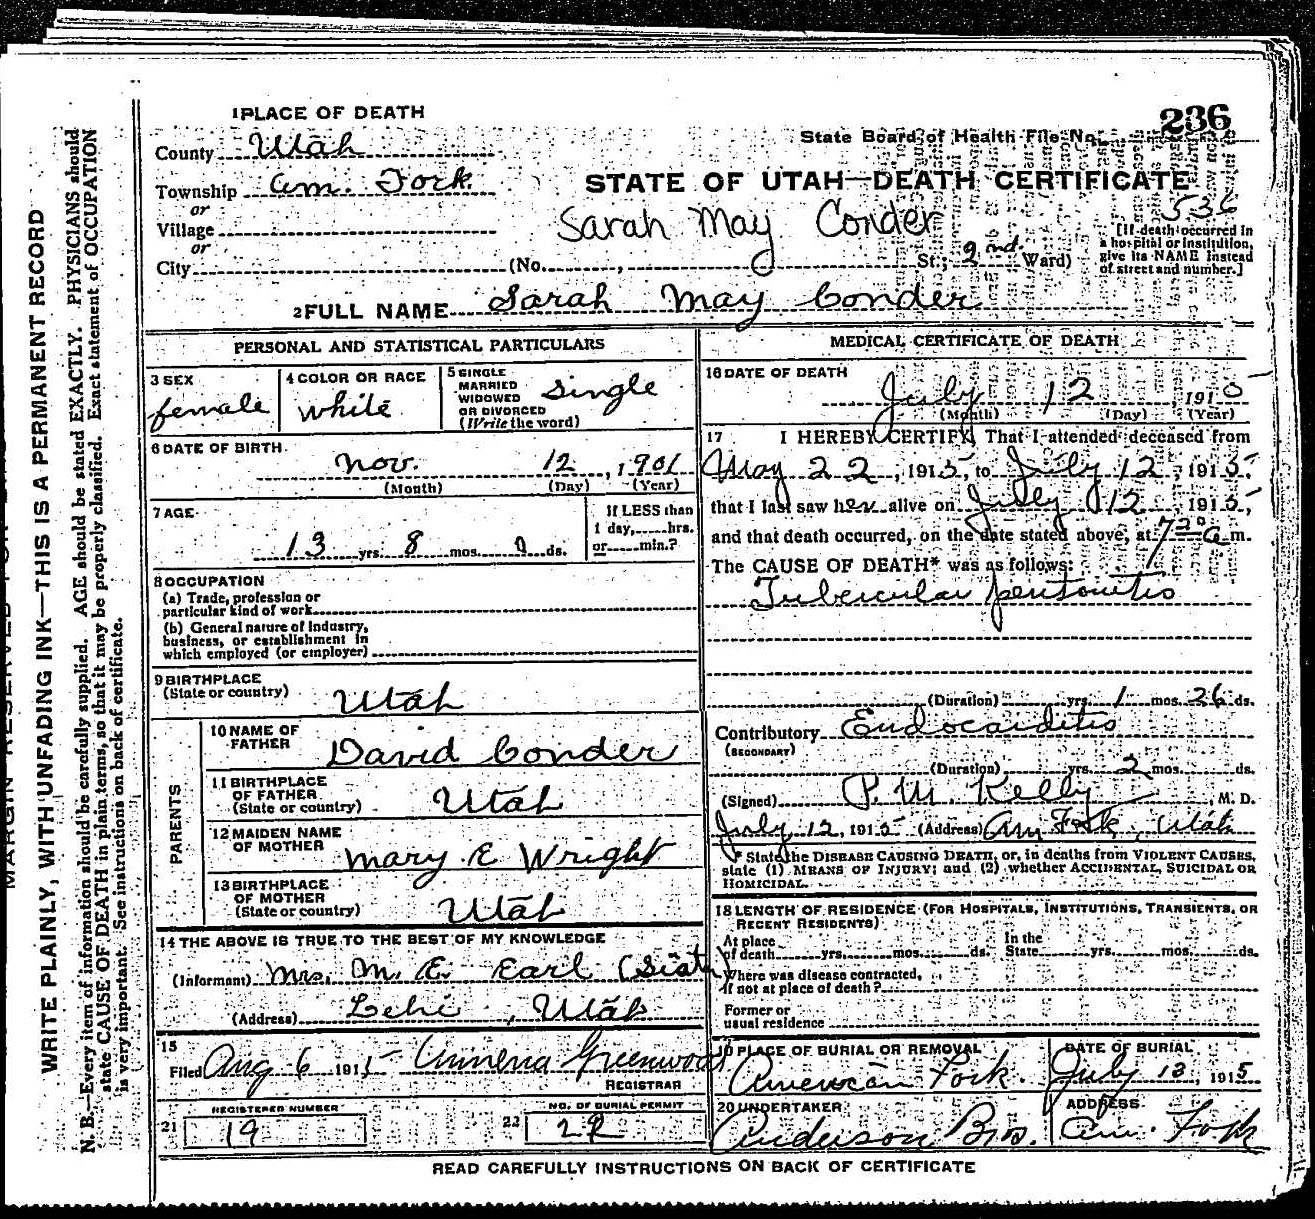 236
1 PLACE OF DEATH
State Board of Health File No.
County Utah
Township Am. Fork
STATE OF UTAH—DEATH CERTIFICATE
or
Village
536
Sarah May Conder
[If death occurred in a hospital or institution, give its NAME instead of street and number.]
or
City (No. , St.; 2nd Ward)
2 FULL NAME Sarah May Conder
PERSONAL AND STATISTICAL PARTICULARS
3 SEX
female
4 COLOR OR RACE
white
5 SINGLE MARRIED WIDOWED OR DIVORCED (Write the word)
Single
6 DATE OF BIRTH
Nov. 12, 1901
(Month) (Day) (Year)
7 AGE
13 yrs. 8 mos. 0 ds.
If LESS than 1 day, hrs. or min.?
8 OCCUPATION
(a) Trade, profession or
particular kind of work
(b) General nature of Industry,
business, or establishment in
which employed (or employer)
9 BIRTHPLACE
(State or country) Utah
PARENTS
10 NAME OF FATHER David Conder
11 BIRTHPLACE OF FATHER (State or country) Utah
12 MAIDEN NAME OF MOTHER Mary E Wright
13 BIRTHPLACE OF MOTHER (State or country) Utah
14 THE ABOVE IS TRUE TO THE BEST OF MY KNOWLEDGE
(Informant) Mrs. M. E. Earl (Sister)
(Address) Lehi, Utah
15
Filed Aug 6 1915 Greenwood
REGISTRAR
REGISTERED NUMBER
21 19
NO. OF BURIAL PERMIT
22
MEDICAL CERTIFICATE OF DEATH
16 DATE OF DEATH
July 12, 1915
(Month) (Day) (Year)
17 I HEREBY CERTIFY, That I attended deceased from
May 22, 1915, to July 12, 1915,
that I last saw her alive on July 12, 1915,
and that death occurred, on the date stated above, at 7 20 a m.
The CAUSE OF DEATH* was as follows:
Tubercular peritonitis
(Duration) yrs. 1 mos. 26 ds.
Contributory Endocarditis
(SECONDARY)
(Duration) yrs. 2 mos. ds.
(Signed) P. M. Kelly, M. D.
July 12, 1915 (Address) Am Fork, Utah
* State the DISEASE CAUSING DEATH, or, in deaths from VIOLENT CAUSES,
state (1) MEANS OF INJURY; and (2) whether ACCIDENTAL, SUICIDAL OR
HOMICIDAL.
18 LENGTH OF RESIDENCE (FOR HOSPITALS, INSTITUTIONS, TRANSIENTS, OR
RECENT RESIDENTS)
At place of death yrs. mos. ds. In the State yrs. mos. ds.
Where was disease contracted,
if not at place of death?
Former or
usual residence
19 PLACE OF BURIAL OR REMOVAL
American Fork.
DATE OF BURIAL
July 13, 1915
20 UNDERTAKER
Anderson Bros.
ADDRESS
Am. Fork
READ CAREFULLY INSTRUCTIONS ON BACK OF CERTIFICATE
WRITE PLAINLY, WITH UNFADING INK—THIS IS A PERMANENT RECORD
N. B.—Every item of information should be carefully supplied. AGE should be stated EXACTLY. PHYSICIANS should
state CAUSE OF DEATH in plain terms, so that it may be properly classified. Exact statement of OCCUPATION
is very important. See instructions on back of certificate.